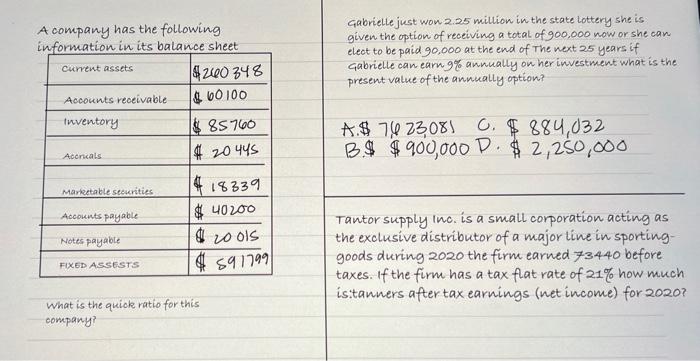 A company has the following
information in its balance sheet
Current assets $260348
Accounts receivable $60100
Inventory $85760
Accruals $20445
Marketable securities $18339
Accounts payable $40200
Notes payable $20015
FIXED ASSESTS $591799
What is the quick ratio for this
company?
Gabrielle just won 2.25 million in the state lottery she is
given the option of receiving a total of 900,000 now or she can
elect to be paid 90,000 at the end of The next 25 years if
Gabrielle can earn 9% annually on her investment what is the
present value of the annually option?
A.$ 7623,081 C. $ 884,032
B.$ $900,000 D. $ 2,250,000
Tantor supply Inc. is a small corporation acting as
the exclusive distributor of a major line in sporting-
goods during 2020 the firm earned 73440 before
taxes. If the firm has a tax flat rate of 21% how much
is:tanners after tax earnings (net income) for 2020?